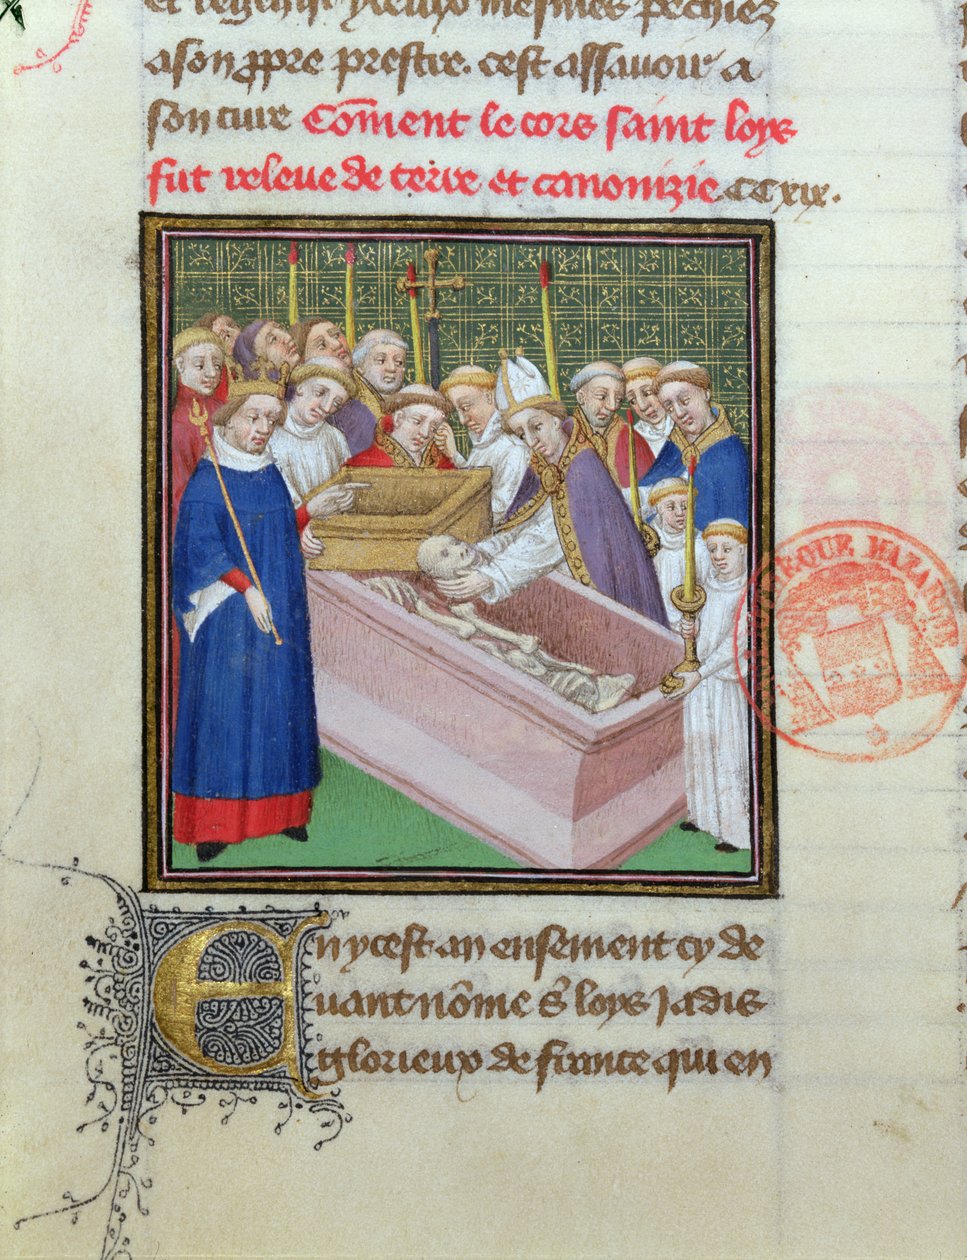 et yceulx mesmes pechiez
a son ppre prestre. cest assavoir a
son cure Coment le cors saint loys
fut releve de terre et canonizie. CCxix.
En ycest an ensement cy de
vant nome s loys jadis
glorieux de france qui en
THEQUE MAZA